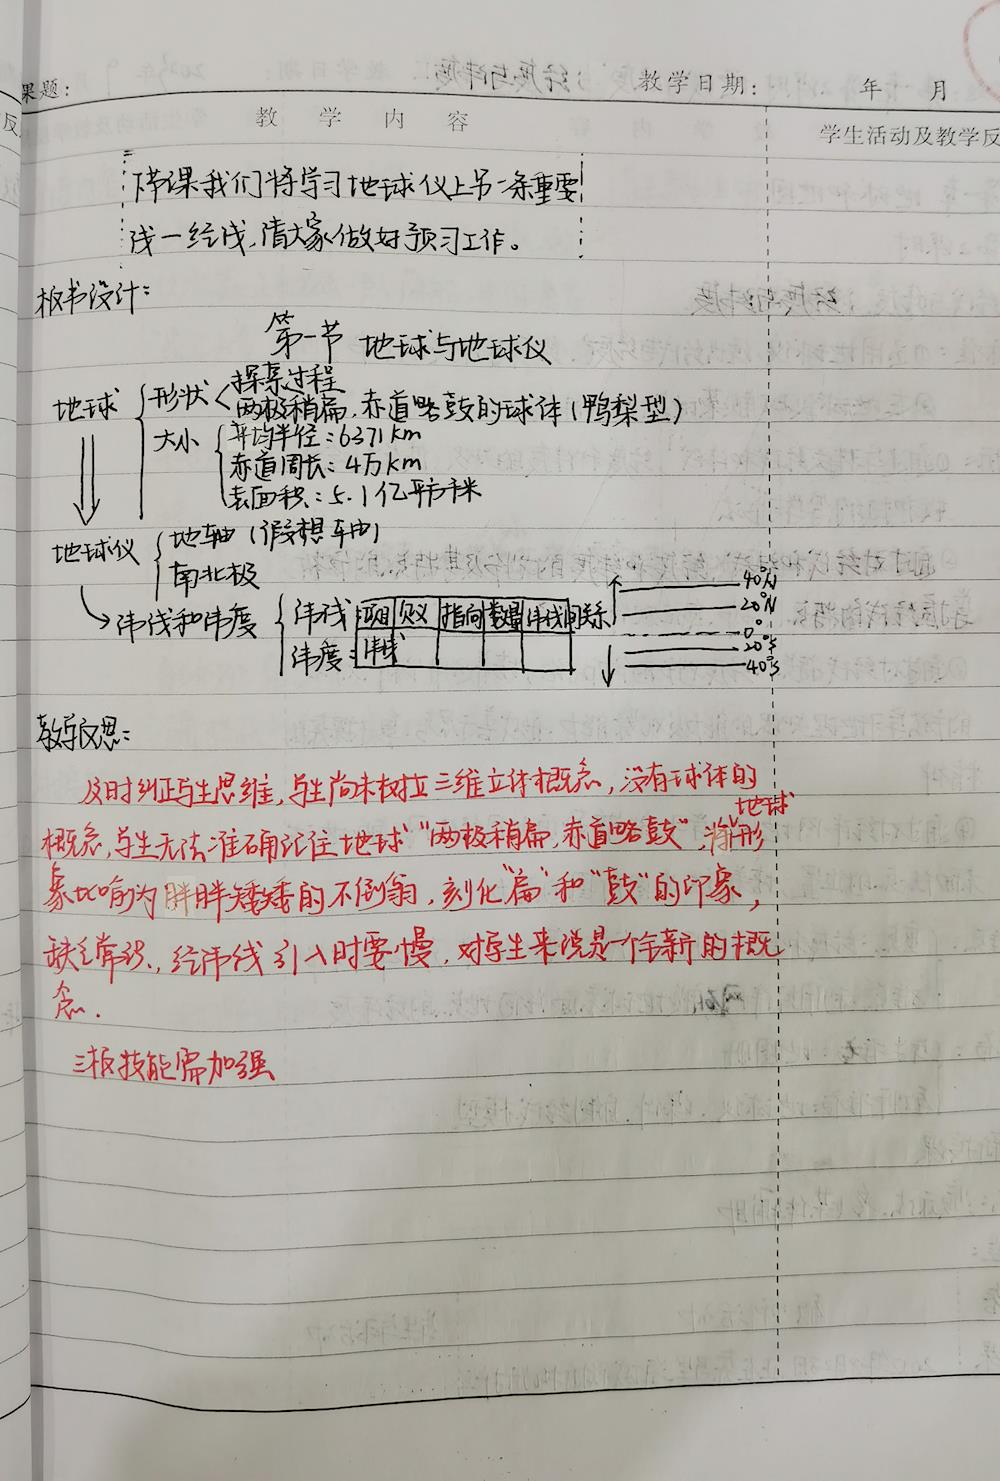 课题： 教学日期： 年 月
教 学 内 容 学生活动及教学反
下节课我们将学习地球仪上另一条重要
线一经线,请大家做好预习工作。
板书设计：
第一节 地球与地球仪
地球 形状 探索过程
两极稍扁,赤道略鼓的球体(鸭梨型)
大小 平均半径：6371km
赤道周长：4万km
表面积：5.1亿平方千米
地球仪 地轴(假想轴)
南北极
纬线和纬度 纬线 定义 指向 数量 纬线间关系
纬度： 纬线
40°N
20°N
0°
20°S
40°S
教学反思：
及时纠正学生思维,学生尚未树立三维立体概念,没有球体的
概念,学生无法准确记住地球"两极稍扁,赤道略鼓",将地球形
象比喻为胖胖矮矮的不倒翁,刻化"扁"和"鼓"的印象,
缺乏常识,经纬线引入时要慢,对学生来说是一个全新的概
念.
三板技能需加强